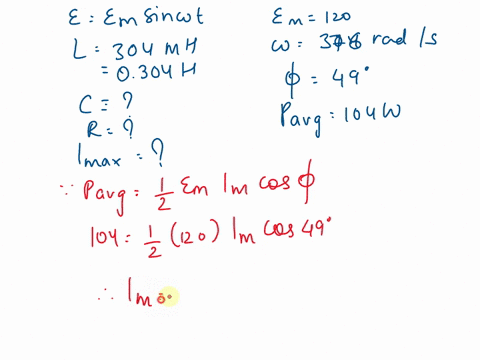 ε = εm sin ωt
L = 304 mH
= 0.304 H
C = ?
R = ?
Imax = ?
εm = 120
rad/s
ω =
ϕ = 49°
Pavg = 104 W
∵ Pavg = 1/2 εm Im cos ϕ
104 = 1/2 (120) Im cos 49°
∴ Im